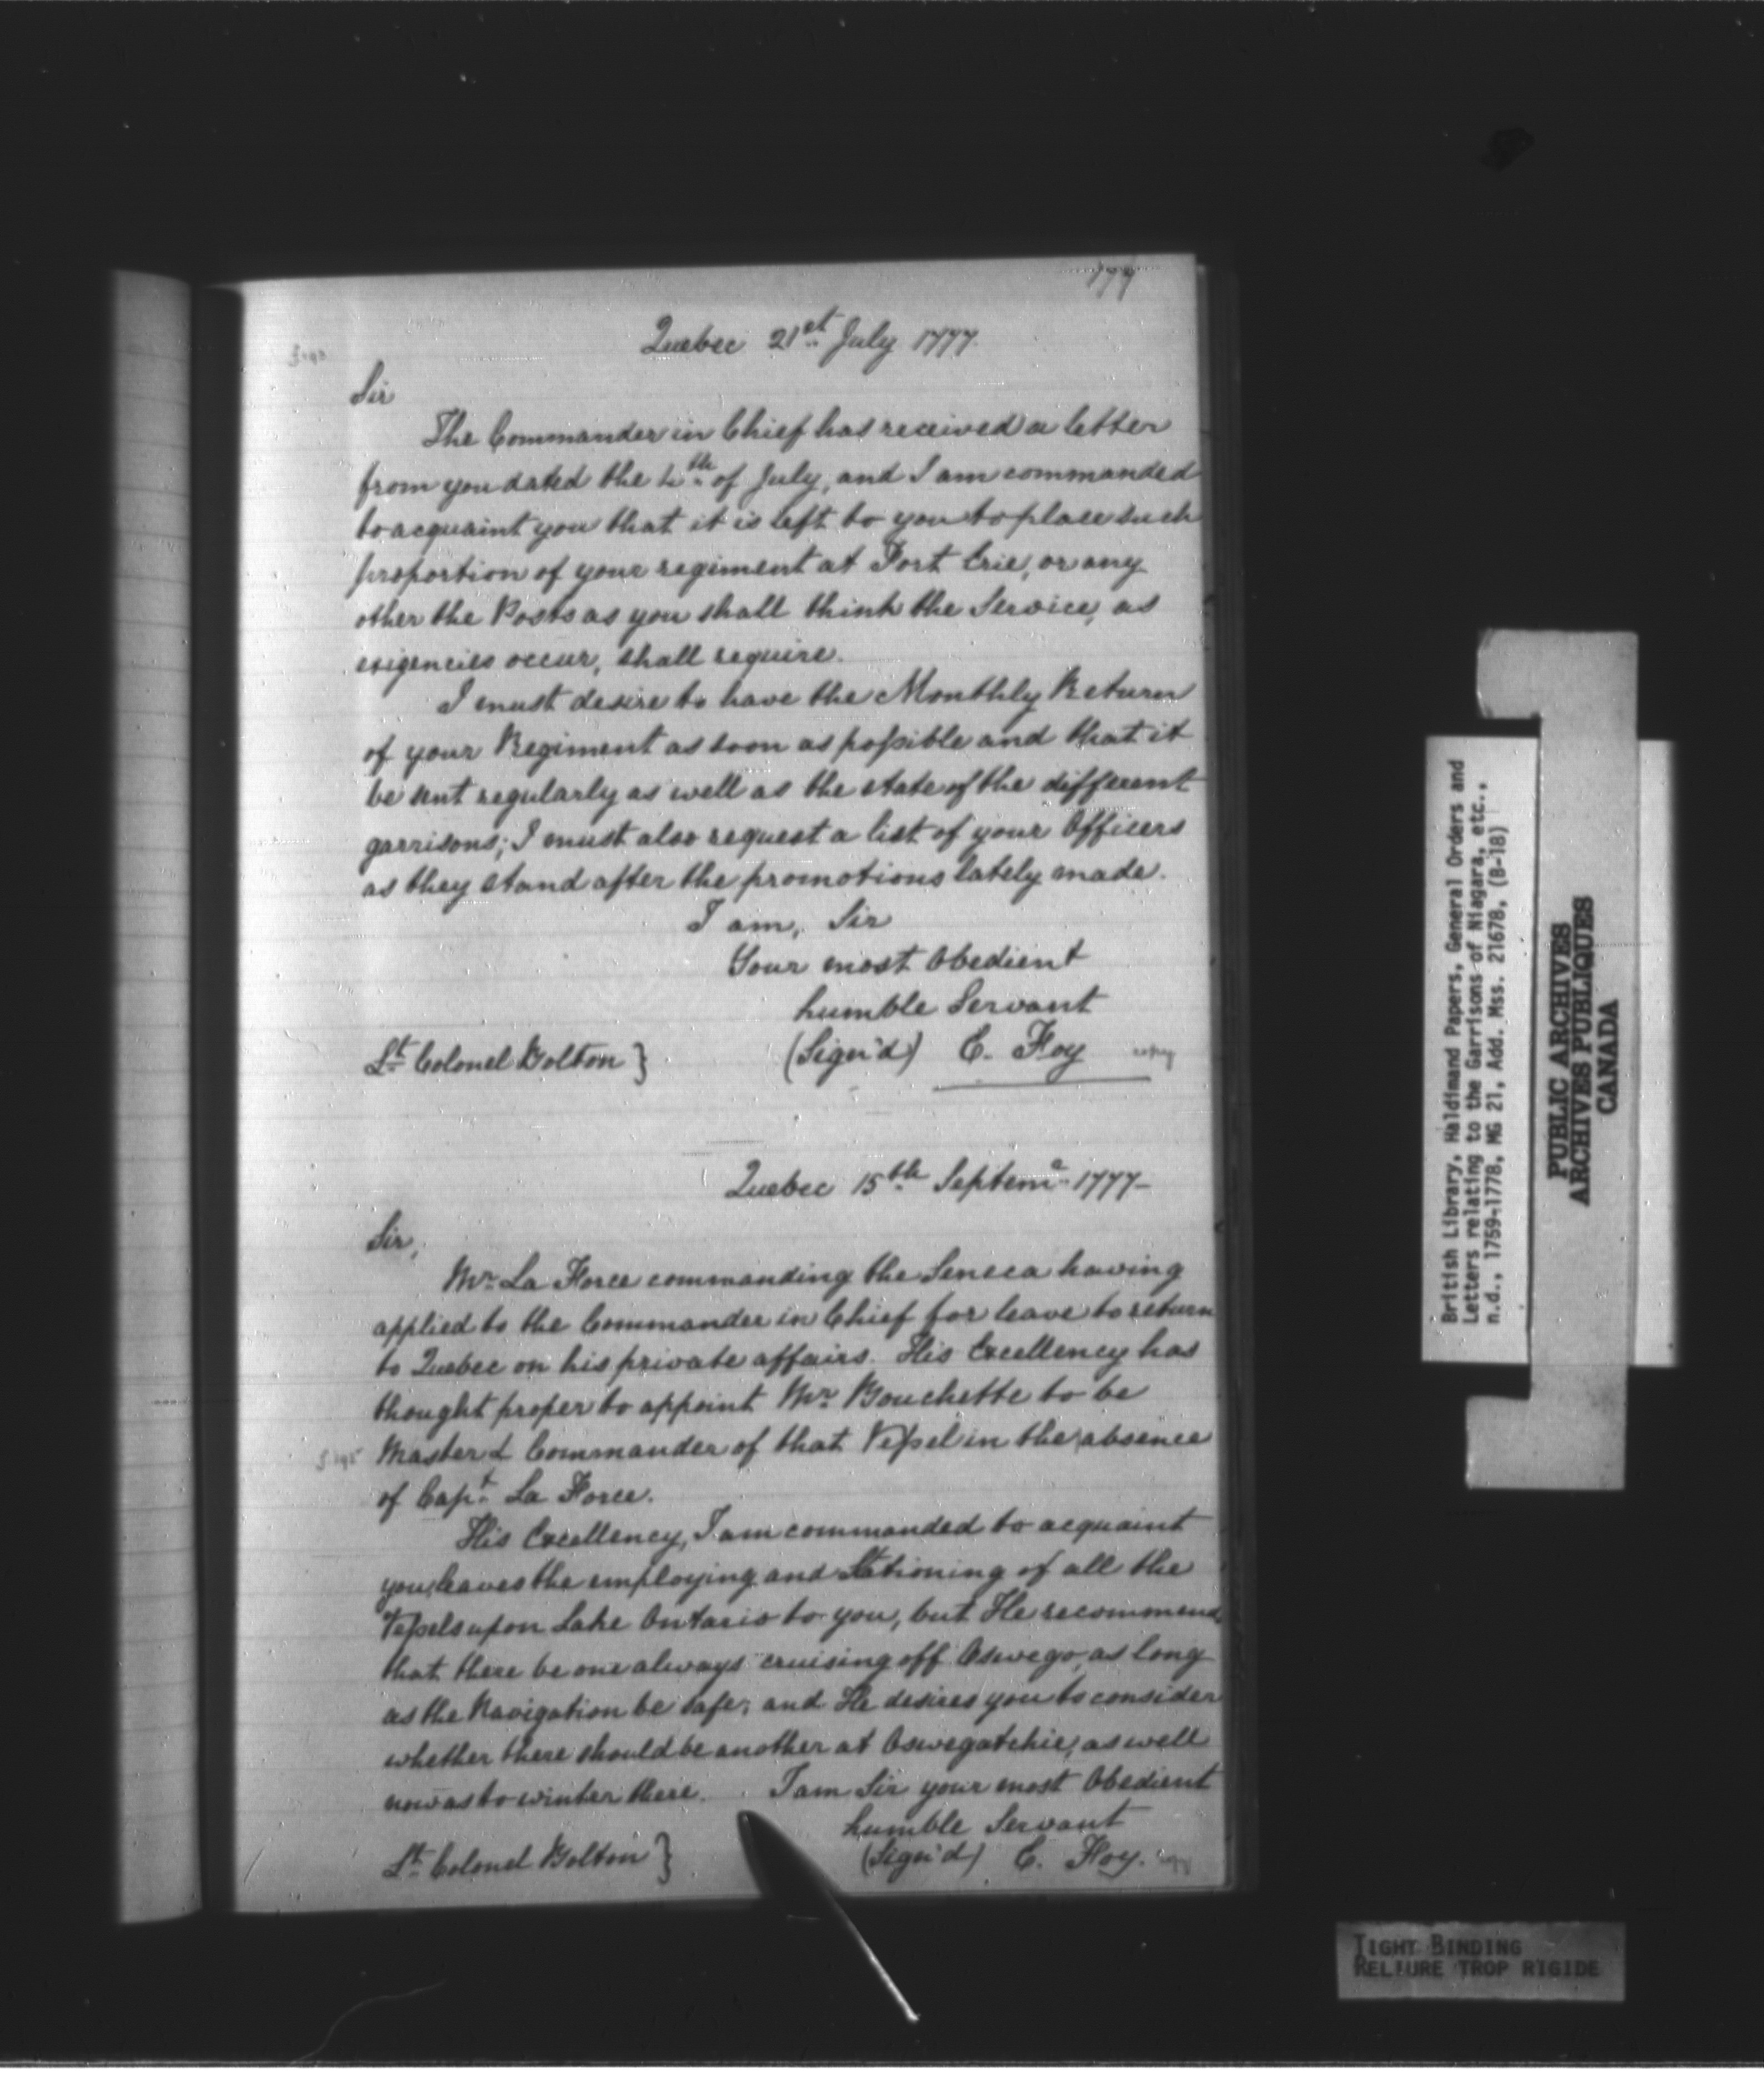 177
Quebec 21st July 1777.
Sir
The Commander in Chief has received a letter
from you dated the 4th of July, and I am commanded
to acquaint you that it is left to you to place such
proportion of your regiment at Fort Erie, or any
other the Posts as you shall think the Service, as
exigencies occur, shall require.
I must desire to have the Monthly Return
of your Regiment as soon as possible and that it
be sent regularly as well as the state of the different
garrisons; I must also request a list of your Officers
as they stand after the promotions lately made.
I am, Sir
Your most Obedient
humble Servant
Lt Colonel Bolton } (Sign'd) E. Foy copy
Quebec 15th Septemr 1777-
Sir,
Mr La Force commanding the Seneca having
applied to the Commander in Chief for leave to return
to Quebec on his private affairs. His Excellency has
thought proper to appoint Mr Bouchette to be
Master & Commander of that Vessel in the absence
of Capt La Force.
His Excellency, I am commanded to acquaint
you, leaves the employing and Stationing of all the
Vessels upon Lake Ontario to you, but He recommends
that there be one always cruising off Oswego, as long
as the Navigation be safe; and He desires you to consider
whether there should be another at Oswegatchie, as well
now as to winter there. I am Sir your most Obedient
humble Servant
Lt Colonel Bolton } (Sign'd) E. Foy. copy
British Library, Haldimand Papers, General Orders and
Letters relating to the Garrisons of Niagara, etc.,
n.d., 1759-1778, MG 21, Add. Mss. 21678, (B-18)
PUBLIC ARCHIVES
ARCHIVES PUBLIQUES
CANADA
TIGHT BINDING
RELIURE TROP RIGIDE